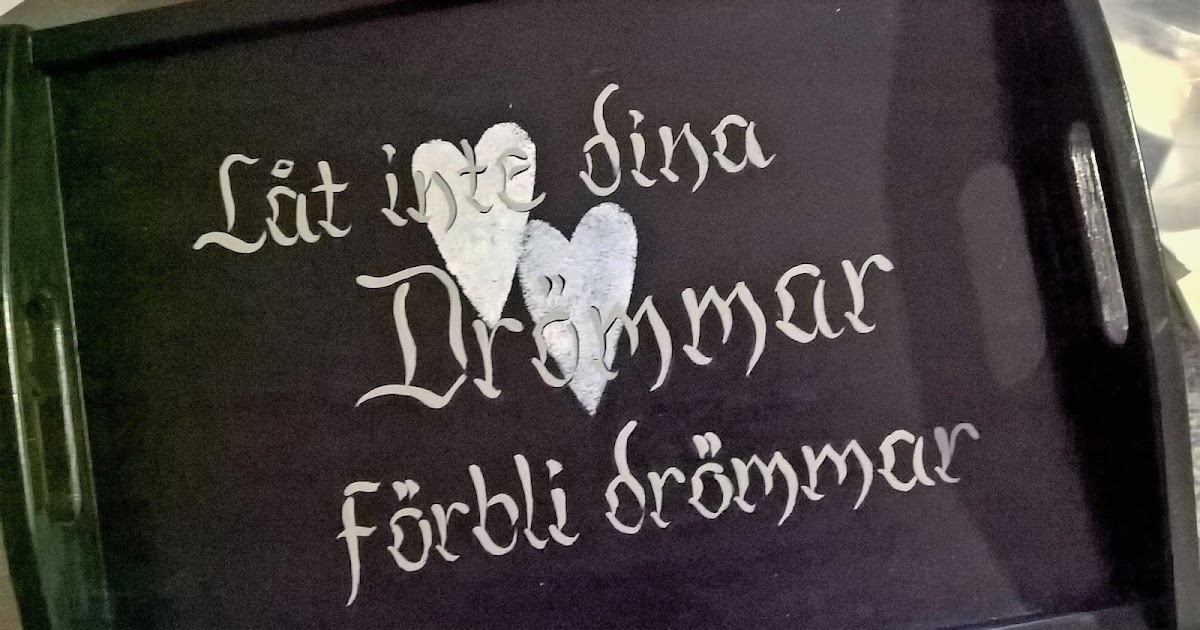 Låt inte dina
Drömmar
Förbli drömmar